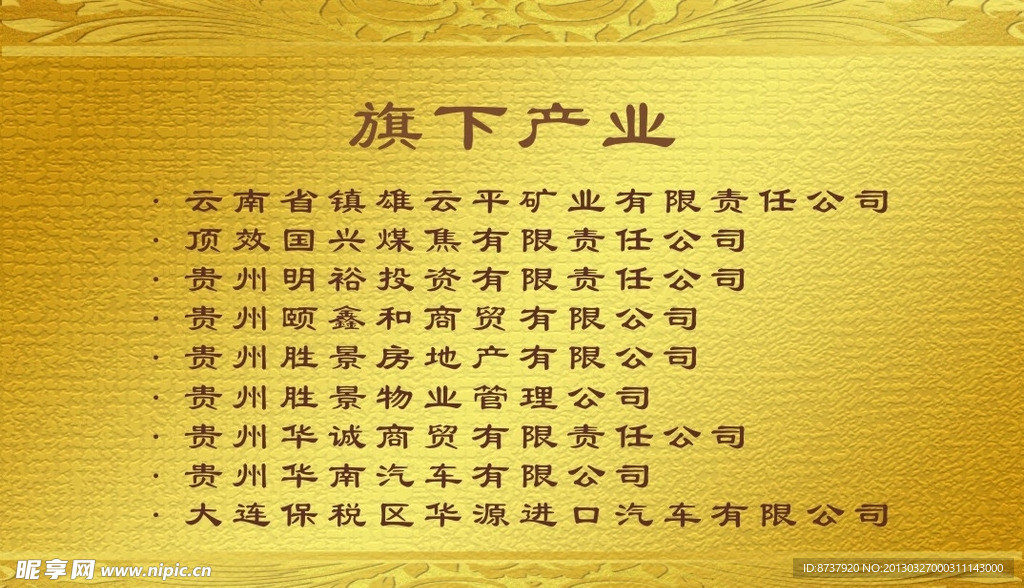 旗下产业
· 云南省镇雄云平矿业有限责任公司
· 顶效国兴煤焦有限责任公司
· 贵州明裕投资有限责任公司
· 贵州颐鑫和商贸有限公司
· 贵州胜景房地产有限公司
· 贵州胜景物业管理公司
· 贵州华诚商贸有限责任公司
· 贵州华南汽车有限公司
· 大连保税区华源进口汽车有限公司
昵享网 www.nipic.cn
ID:8737920 NO:20130327000311143000